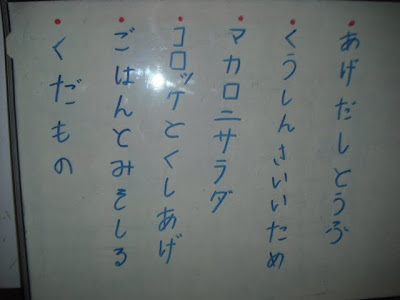 あげだしとうふ
くうしんさいいため
マカロニサラダ
コロッケとくしあげ
ごはんとみそしる
くだもの